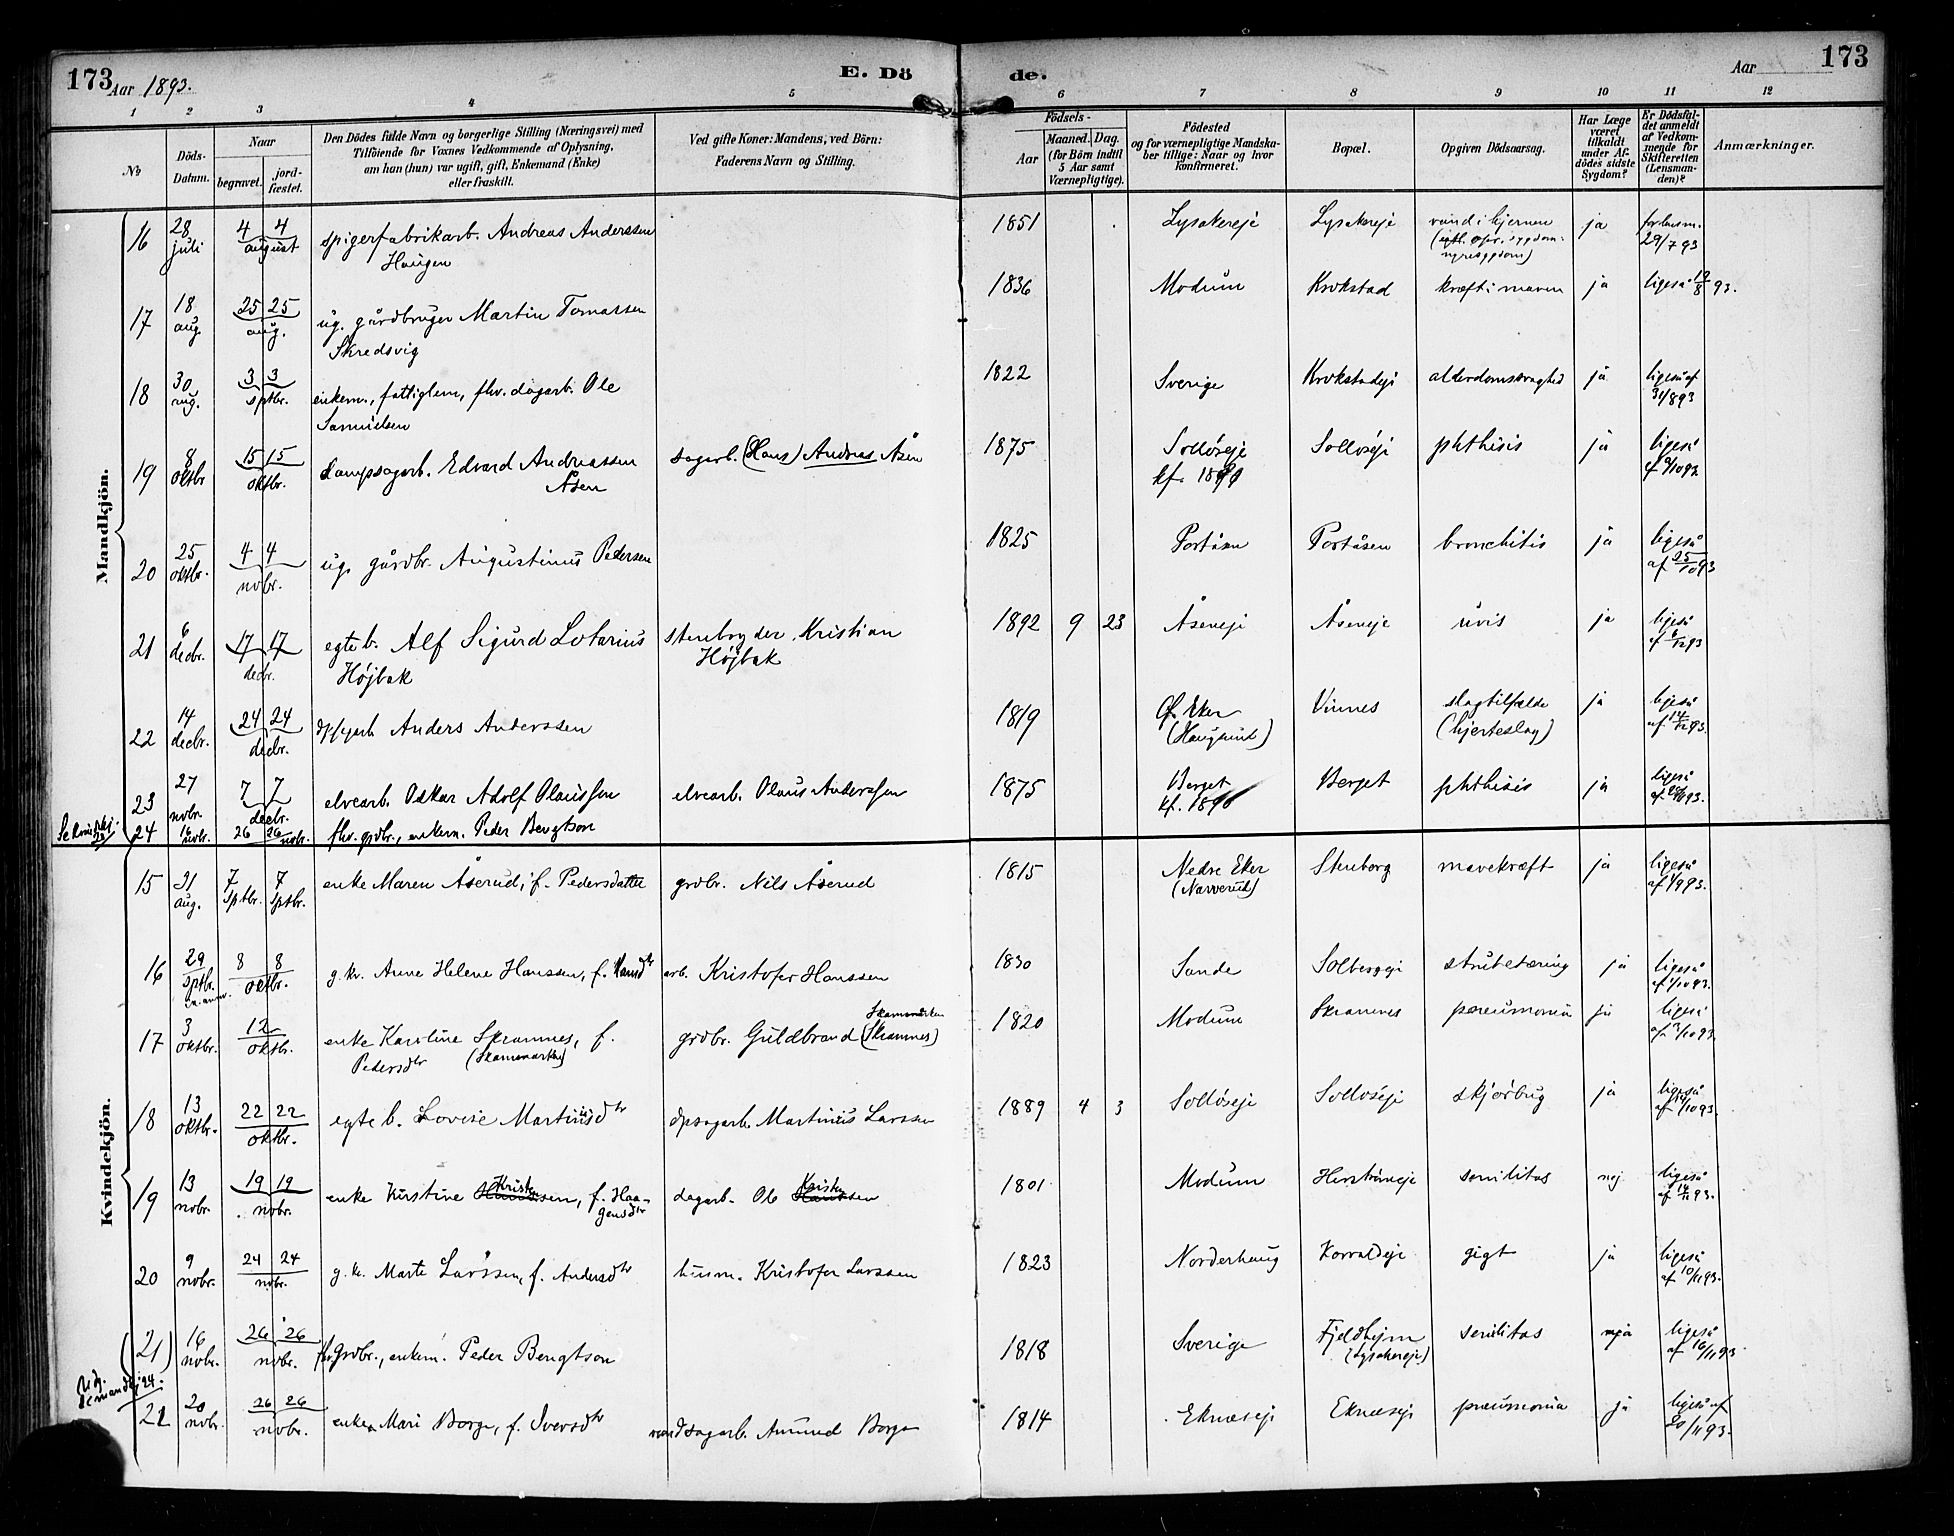 173 Aar 1893. E. Dö de. Aar 173
1 2 3 4 5 6 7 8 9 10 11 12
No
Döds-
Datum.
Naar
begravet. jord-
fæstet.
Den Dödes fulde Navn og borgerlige Stilling (Næringsvei) med
Tilföiende for Voxnes Vedkommende af Oplysning,
om han (hun) var ugift, gift, Enkemand (Enke)
eller fraskilt.
Ved gifte Koner: Mandens, ved Börn:
Faderens Navn og Stilling.
Födsels-
Aar Maaned. Dag.
(for Börn indtil
5 Aar samt
Værnepligtige).
Födested
og for værnepligtige Mandska-
ber tillige: Naar og hvor
konfirmeret.
Bopæl.
Opgiven Dödsaarsag.
Har Læge
været
tilkaldt
under Af-
dödes sidste
Sygdom?
Er Dödsfal-
det anmeldt
af Vedkom-
mende for
Skifteretten
(Lensman-
den)?
Anmærkninger.
Mandkjön.
16 28 juli 4 4 august spigerfabrikarb. Andreas Anderssen
Haugen
1851 Lysakereje Lysakereje vand i hjernen
ja 29/7 93
17 18 aug. 25 25 aug. ug. gårdbruger Martin Tomassen
Skredsvig
1836 Modum Krokstad kræft i maven ja ligeså 19/8 93.
18 30 aug. 3 3 sptbr. enkem., fattiglem, fhv. dagarb. Ole
Samuelsen
1822 Sverige Krokstadeje alderdomssvaghed ja ligeså af
31/8 93
19 8 oktbr. 15 15 oktbr. dampsagarb. Edvard Andreassen
Åsen
sagarb. (Hans) Andreas Åsen 1875 Solløseje
kf. 1890
Solløseje phthisis ja ligeså
af 9/10 93
20 25 oktbr. 4 4 novbr. ug. gårdbr. Augustinus Pedersen
1825 Portåsen Portåsen bronchitis ja ligeså
af 25/10 93
21 6 decbr. 17 17 decbr. egte b. Alf Sigurd Lotarius
Højbak
stenbryder Kristian
Højbak
1892 9 23 Åseneje Åseneje uvis ja ligeså
af 6/12 93
22 14 decbr. 24 24 decbr. Anders Anderssen
1819 Øf. Eker
(Haugsund)
Vinnes slagtilfælde
(hjerteslag)
ja ligeså
af 14/12 93.
23 27 novbr. 7 7 decbr. elvearb. Oskar Adolf Olaussen elvearb. Olaus Anderssen
1875 Berget
kf. 1890
Berget phthisis ja ligeså
af 28/11 93.
24 16 novbr. 26 26 novbr. fhv. grdbr., enkem. Peder Bengtson
Kvindekjön.
15 31 aug. 7 sptbr. 7 sptbr. enke Maren Åserud, f. Pedersdatter grdbr. Nils Åserud
1815 Nedre Eker
(Narverud)
Stenborg mavekræft ja ligeså
af 1/9 93.
16 29 sptbr. 8 8 oktbr. g. kv. Anne Helene Hanssen, f. arb. Kristofer Hanssen
1830 Sande Solbergeje strubetæring ja ligeså
af 1/10 93.
17 3 oktbr. 12 oktbr. enke Karoline Skramnes, f.
Pedersdtr (Skamsmarken)
grdbr. Guldbrand (Skramnes)
Skamsmarken
1820 Modum Skramnes pneumonia ja ligeså
af 3/10 93.
18 13 oktbr. 22 22 oktbr. egte b. Lovise Martinusdtr dpsagarb. Martinius Larssen
1889 4 3 Solløseje Solløseje skjørbug ja ligeså
af 14/10 93.
19 13 novbr. 19 19 novbr. enke Kirstine Kristensen, f. Haa-
gensdtr
dagarb. Ole Kristensen
1801 Modum Herstrømeje senilitas nej ligeså
af 14/11 93.
20 9 novbr. 24 24 novbr. g. kv. Marte Larssen, f. Andersdtr husm. Kristofer Larssen
1823 Norderhaug Korvaldeje gigt ja ligeså
af 10/11 93.
(21) 16 novbr. 26 26 novbr. fhv. grdbr., enkem. Peder Bengtson
1818 Sverige Fjeldhejm
(Lysakereje)
senilitas ja ligeså
af 16/11 93
Se mandkj 24.
22 20 novbr. 26 26 novbr. enke Mari Borge, f. Iversdtr vandsagarb. Amund Borge
1814 Eknæseje Eknæseje pneumonia ja ligeså af
20/11 93.